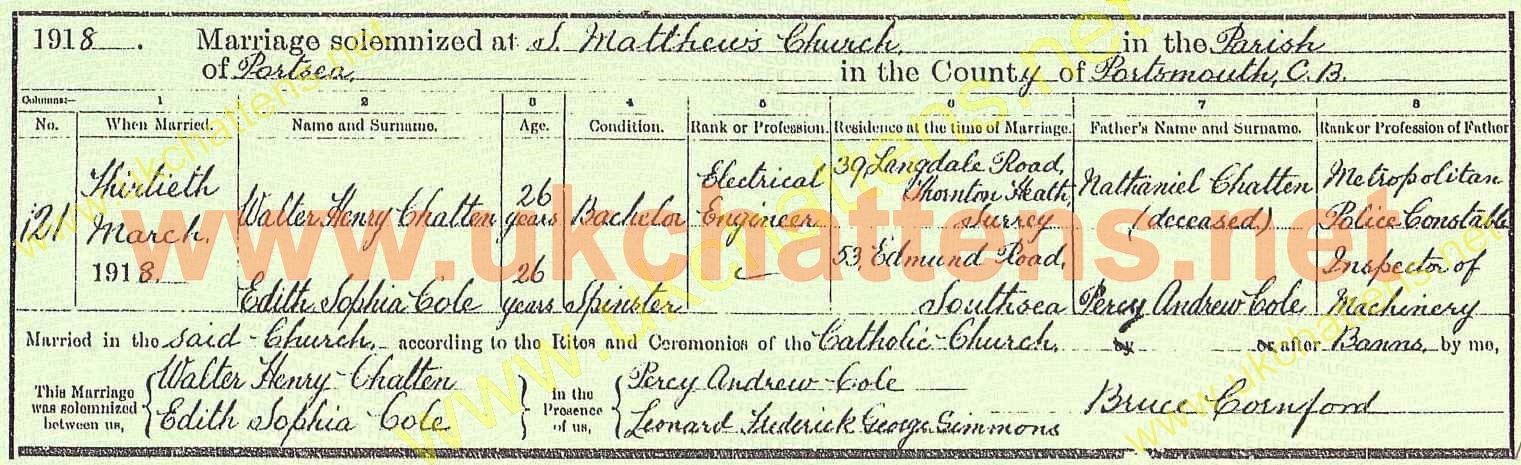 1918. Marriage solemnized at S. Matthews Church. in the Parish
of Portsea, in the County of Portsmouth, C.B.
Columns:— 1 2 3 4 5 6 7 8
No. When Married. Name and Surname. Age. Condition. Rank or Profession. Residence at the time of Marriage. Father's Name and Surname. Rank or Profession of Father
121 Thirtieth March. 1918. Walter Henry Chatten 26 years Bachelor Electrical Engineer 39, Langdale Road, Thornton Heath, Surrey Nathaniel Chatten (deceased) Metropolitan Police Constable
Edith Sophia Cole 26 years Spinster — 53, Edmund Road, Southsea Percy Andrew Cole Inspector of Machinery
Married in the said Church. according to the Rites and Ceremonies of the Catholic Church. by or after Banns. by me,
This Marriage was solemnized between us, Walter Henry Chatten Edith Sophia Cole in the Presence of us, Percy Andrew Cole Leonard Frederick George Simmons Bruce Cornford
www.ukchattens.net
www.ukchattens.net
www.ukchattens.net
www.ukchattens.net
www.ukchattens.net